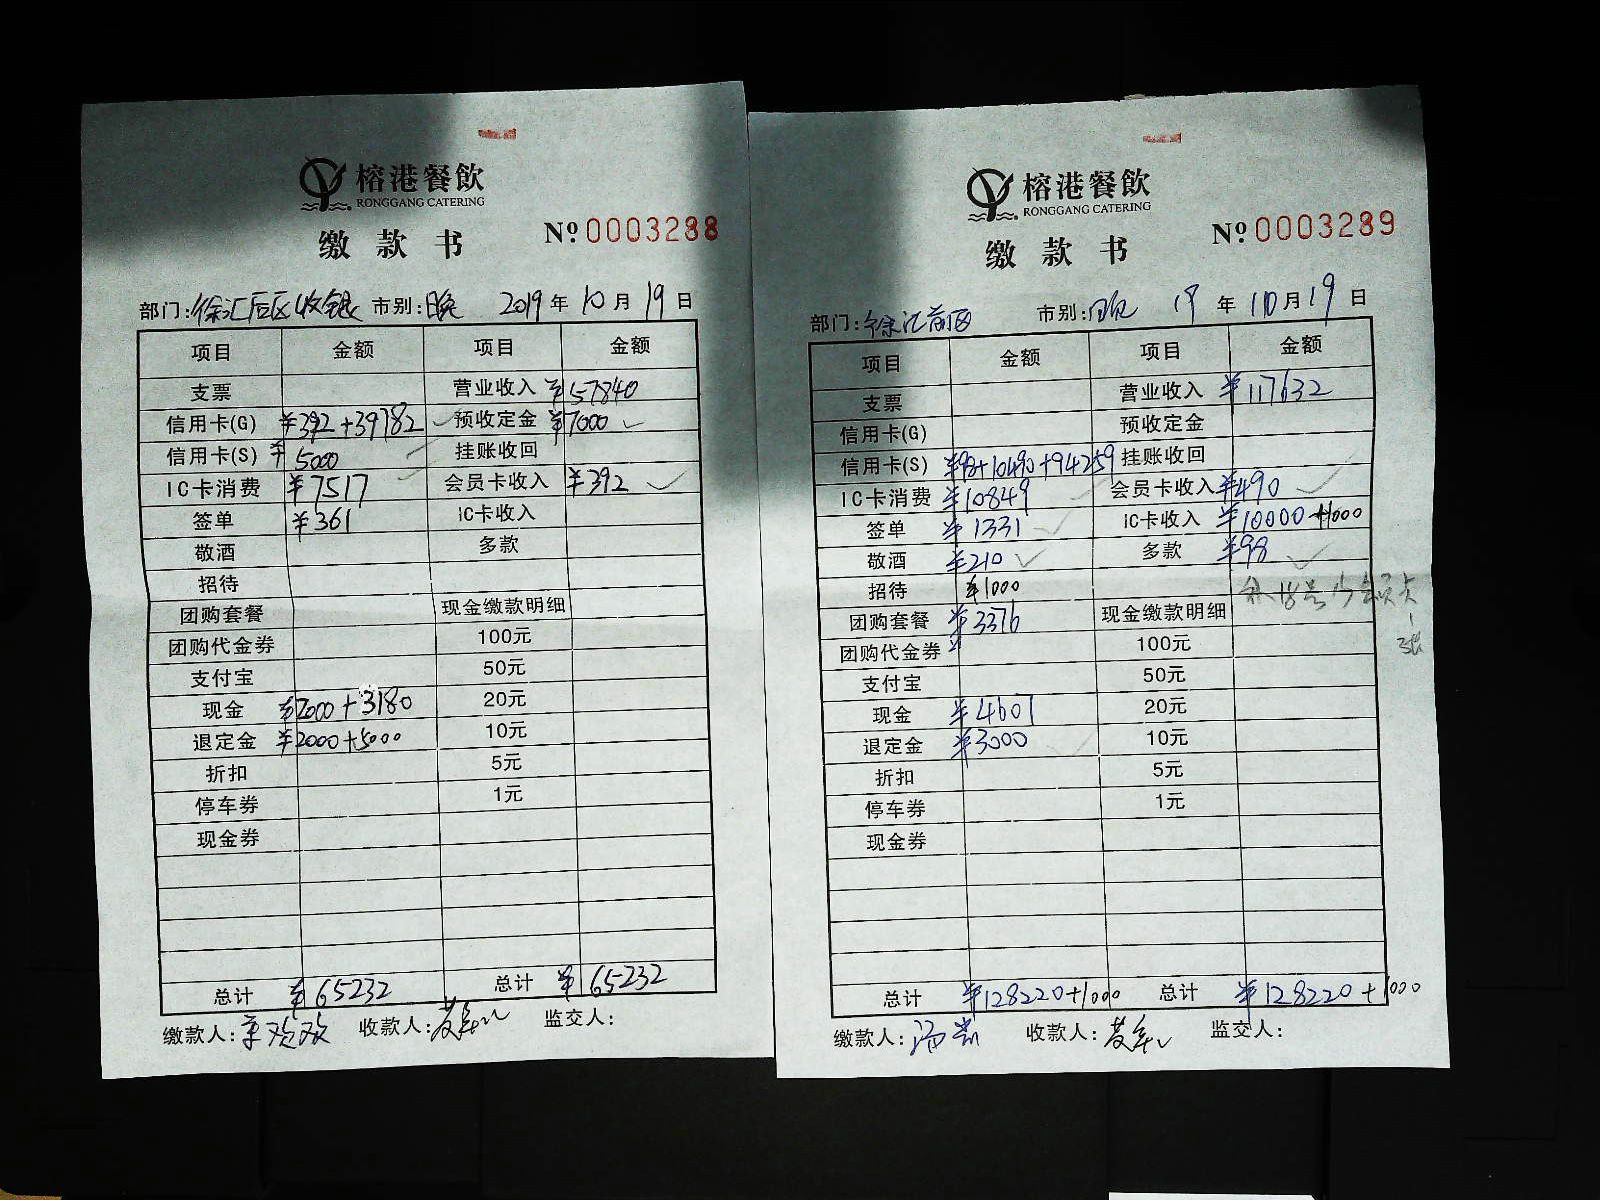 榕港餐飲
RONGGANG CATERING
缴款书 № 0003288
部门:徐汇后区收银 市别:晚 2019年10月19日
项目 金额 项目 金额
支票 营业收入 ¥57840
信用卡(G) ¥392+39782 预收定金 ¥7000
信用卡(S) ¥5000 挂账收回
IC卡消费 ¥7517 会员卡收入 ¥392
签单 ¥361 IC卡收入
敬酒 多款
招待
团购套餐 现金缴款明细
团购代金券 100元
支付宝 50元
现金 ¥2000+3180 20元
退定金 ¥2000+5000 10元
折扣 5元
停车券 1元
现金券
总计 ¥65232 总计 ¥65232
缴款人: 收款人: 监交人:
榕港餐飲
RONGGANG CATERING
缴款书 № 0003289
部门:徐汇前区 市别:晚 19年10月19日
项目 金额 项目 金额
支票 营业收入 ¥117632
信用卡(G) 预收定金
信用卡(S) ¥98+10490+94259 挂账收回
IC卡消费 ¥10849 会员卡收入 ¥490
签单 ¥1331 IC卡收入 ¥10000+1000
敬酒 ¥210 多款 ¥98
招待 ¥1000
团购套餐 ¥3376 现金缴款明细
团购代金券 100元
支付宝 50元
现金 ¥4601 20元
退定金 ¥3000 10元
折扣 5元
停车券 1元
现金券
总计 ¥128220+1000 总计 ¥128220+1000
缴款人: 收款人: 监交人: